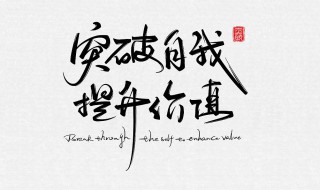 突破自我
提升价值
Break through the self to enhance value